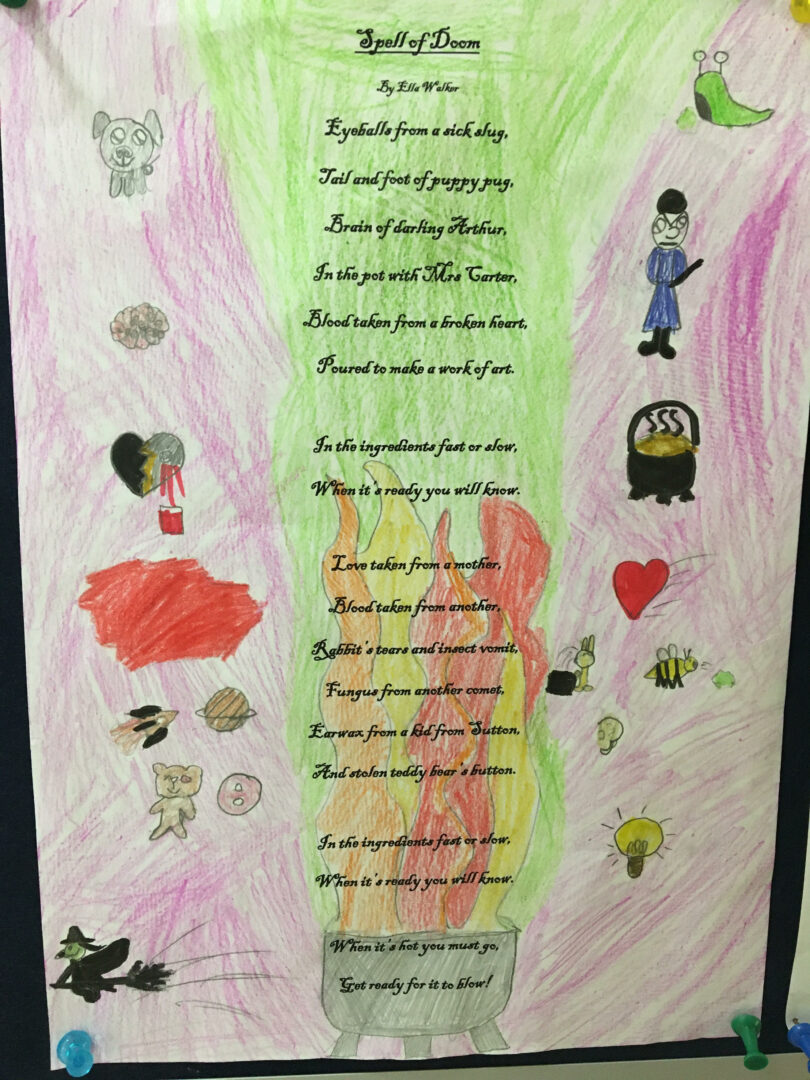 Spell of Doom
By Ella Walker
Eyeballs from a sick slug,
Tail and foot of puppy pug,
Brain of darling Arthur,
In the pot with Mrs Carter,
Blood taken from a broken heart,
Poured to make a work of art.
In the ingredients fast or slow,
When it's ready you will know.
Love taken from a mother,
Blood taken from another,
Rabbit's tears and insect vomit,
Fungus from another comet,
Earwax from a kid from Sutton,
And stolen teddy bear's button.
In the ingredients fast or slow,
When it's ready you will know.
When it's hot you must go,
Get ready for it to blow!